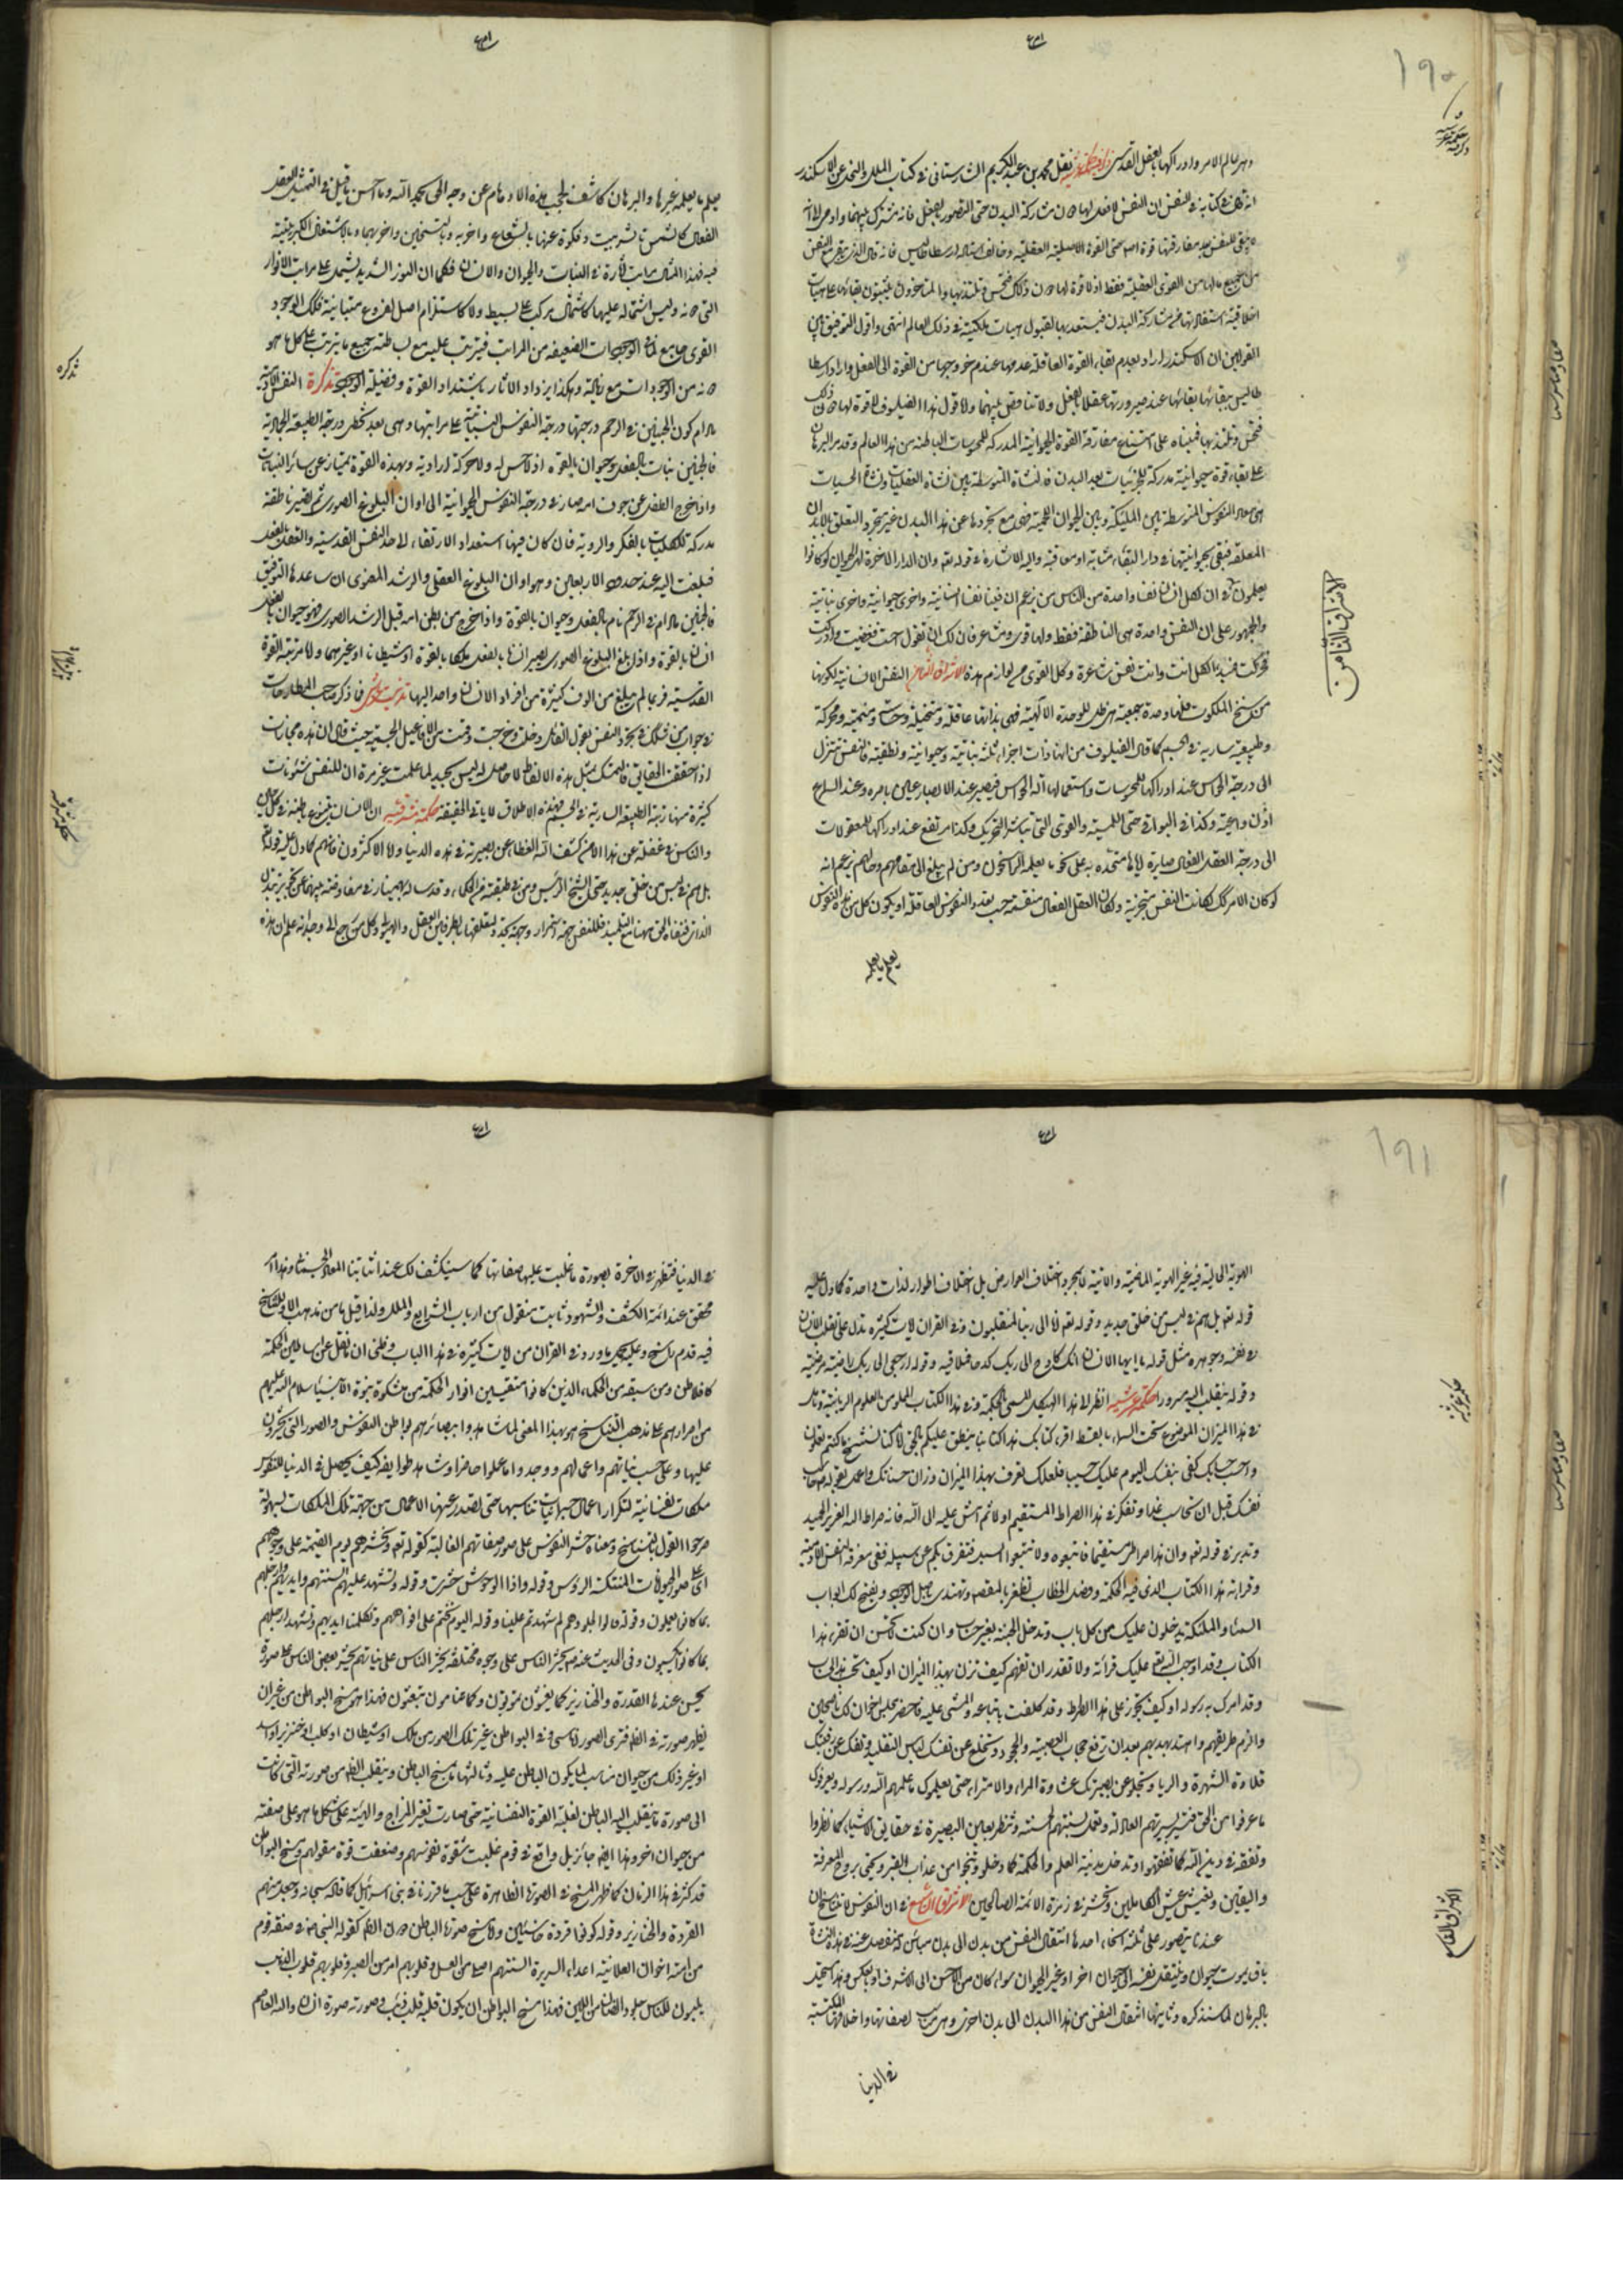 ١٩٠
نقل محمد بن عبد الكريم الشهرستاني في كتاب الملل والنحل عن الاسكندر
في كتابه في النفس ان النفس لا فعل لها دون مشاركة البدن حتى التصور بالعقل فانه مشترك بينهما واومى الى انه
لا يبقى للنفس بعد مفارقتها قوة اصلا حتى القوة العقلية وخالف استاده ارسطاطاليس فانه قال الذي يبقى مع النفس
من جميع ما لها من القوى العقلية فقط اذ لا قوة لها دون ذلك فتحس وتلتذ بها والمتاخرون يثبتون بقائها على هيات
اخلاقية استفادتها من مشاركة البدن فيستعد بها لقبول هيات ملكية في ذلك العالم انتهى واقول التوفيق بين
القولين ان الاسكندر اراد بعدم بقاء القوة العاقلة عدمها عند عدم خروجها من القوة الى الفعل واراد ارسطا
طاليس ببقائها بقائها عند صيرورتها عقلا بالفعل ولا تناقض بينهما ولا قول هذا الفيلسوف لا قوة لها دون ذلك
فتحس وتلتذ بها فمبناه على امتناع مفارقة القوة الحيوانية المدركة للمحسوسات الباطنة من هذا العالم وقد مر البرهان
على بقاء قوة حيوانية مدركة للجزئيات بعد البدن في نشاة المتوسطة بين نشاة العقليات ونشاة الحسيات
النفوس المتوسطة بين المليكة وبين الحيوان اللحمية فهي مع تجردها عن هذا البدن غير متجرد التعلق بالابدان
المعلقة فتبقى بحيوانيتها في دار البقاء مثابة او معاقبة واليه الاشارة في قوله تعه وان الدار الاخرة لهي الحيوان لو كانوا
يعلمون ان لكل انسان نفسا واحدة من الناس من زعم ان فينا نفسا انسانية واخرى حيوانية واخرى نباتية
والجمهور على ان النفس واحدة هي الناطقة فقط ولها قوى ومشاعر فان لك ان تقول احسست فغضبت وادركت
فحركت فمبدء الكل انت وانت نفس شاعرة وكل القوى من لوازم هذه الاشراق الثامن النفس الانسانية لكونها
من سنخ الملكوت فلها وحدة جمعية هي ظل للوحدة الالهية فهي بذاتها عاقلة ومتخيلة وحساسة ومنمية ومحركة
وطبيعية سارية في الجسم كما قال الفيلسوف من انها ذات اجزاء ثلثة نباتية وحيوانية ونطقية فالنفس تتنزل
الى درجة الحواس عند ادراكها للمحسوسات واستعمالها آلة الحواس فيصير عند الابصار عين باصرة وعند السماع
اذن واعية وكذا في البواقي حتى اللمسية والقوى التي تباشر التحريك وكذا ترتفع عند ادراكها للمعقولات
الى درجة العقل الفعال صائرة اياها متحدة به على نحو ما يعلمه الراسخون ومن لم يبلغ الى مقامهم وحالهم يزعم انه
لو كان الامر كك لكانت النفس متجزية ولكان العقل الفعال منقسما حسب تعدد النفوس العاقلة او يكون كل من هذه النفوس
يعلم ما يعلمه
الاشراق الثامن
يعلم ما يعلمه غيرها والبرهان كاشف لحجب هذه الاوهام عن وجه الحق بحمد الله وما احسن ما قيل في التمثيل العقل
الفعال كالشمس
فيه فهذا المثال مراتب آثاره في النبات والحيوان والانسان فكما ان النور الشديد يشتمل على مراتب الانوار
التي دونه وليس اشتماله عليها كاشتمال مركب على بسيط ولا كاستلزام اصل لفروع متباينة فكك الوجود
القوى جامع لما في الوجودات الضعيفة من المراتب فيترتب عليه مع بساطته جميع ما يترتب على كل ما هو
دونه من الوجودات مع زيادة وهكذا يزداد الاثار باشتداد القوة وفضيلة الوجود تذكرة النفس الادمية
ما دام كون الجنين في الرحم درجتها درجة النفوس النباتية على مراتبها وهي بعد تخطى درجة الطبيعة الجمادية
فالجنين نبات بالفعل وحيوان بالقوة اذ لا حس له ولا حركة ارادية وبهذه القوة يمتاز عن سائر النباتات
واذا خرج الطفل عن جوف امه صار في درجة النفوس الحيوانية الى اوان البلوغ الصوري ثم يصير ناطقة
مدركة للكليات بالفكر والروية فان كان فيها استعداد الارتقاء الى حد النفس القدسية والعقل بالفعل
فبلغت اليه عند حدود الاربعين وهو اوان البلوغ العقلي والرشد المعنوي ان ساعده التوفيق
فالجنين ما دام في الرحم نام بالفعل وحيوان بالقوة واذا خرج من بطن امه قبل الرشد الصوري فهو حيوان بالفعل
انسان بالقوة واذا بلغ البلوغ الصوري يصير انسانا بالفعل ملكا بالقوة او شيطانا او غيرهما واما مرتبة القوة
القدسية فربما لم يبلغ من الوف كثيرة من افراد الانسان واحد اليها فما ذكره صاحب المطارحات
في جواب من في تجرد النفس بقول القائل دخلت وخرجت وقمت من الافاعيل الجسمية حيث قال ان هذه مجازات
اذا حققت الحقائق فالتمسك بمثل هذه الالفاظ لا حاصل له ليس بجيد لما علمت غير مرة ان للنفس شئونات
كثيرة منها رتبة الطبيعة السارية في الجسم فهذه الاطلاق لا ياتي الحقيقة حكمة مشرقية ان الانسان يتنوع باطنه في كل حين
والناس في غفلة عن هذا الا من كشف الله الغطاء عن بصيرته في هذه الدنيا ولا الاكثرون فانهم كما دل عليه قوله تع
بل هم في لبس من خلق جديد حتى الشيخ الرئيس ومن في طبقته من الحكماء وقد ساله بهمنيار في مفاوضته بينهما عن تجويز تبدل
الذات مع التلميذ فللنفس جهة استمرار وجهة تجدد لتعلقها بالطرفين العقل والهيولى وكل من راجع الى وجدانه علم ان هذه
تذكره
١٩١
الهوية الحالية فيه غير الهوية الماضية والاتية لا بمجرد اختلاف العوارض بل اختلاف اطوار لذات واحدة كما دل عليه
قوله تعه بل هم في لبس من خلق جديد وقوله تعه انا الى ربنا لمنقلبون وفي القران ايات كثيرة تدل على تقلب الانسان
في نفسه وجوهره مثل قوله يا ايها الانسان انك كادح الى ربك كدحا فملاقيه وقوله ارجعي الى ربك راضية مرضية
وقوله ينقلب اليه مسرورا حكمة عرشية انظر الى هذا الهيكل المسمى بالحكمة وفي هذا الكتاب المملو من العلوم الربانية وتامل
في هذا الميزان الموضوع تحت السماء بالقسط اقرء كتابك هذا كتابنا ينطق عليكم بالحق انا كنا نستنسخ ما كنتم تعملون
واحسب حسابك كفى بنفسك اليوم عليك حسيبا فلعلك تعرف بهذا الميزان وزان حسناتك واعمل بقوله حاسب
نفسك قبل ان تحاسب غدا وتفكر في هذا الصراط المستقيم اولا ثم امش عليه الى الله فانه صراط الله العزيز الحميد
وتدبر في قوله تعه وان هذا صراطي مستقيما فاتبعوه ولا تتبعوا السبل فتفرق بكم عن سبيله ففي معرفة النفس الادمية
وقراءة هذا الكتاب الذي فيه الحكمة وفصل الخطاب تظفر بالمقصد وتهتدي باصل الوجود ويفتح لك ابواب
السماء والملئكة يدخلون عليك من كل باب وتدخل الجنة بغير حساب وان كنت لا تحسن ان تقرء هذا
الكتاب وقد اوجب الله تع عليك قرائته ولا تقدر ان تفهم كيف تزن بهذا الميزان او كيف تحسب هذا الحساب
وقد امرك به رسوله او كيف تجوز على هذا الصراط وقد كلفت باتباعه والمشي عليه فاحضر مجلس اخوان لك ناصحين
والزم طريقهم واهتد بهديهم بعد ان ترفع حجاب العصبية والجحود وتخلع عن نفسك لباس التقليد وتفك عن رقبتك
قلادة الشهرة والريا وتجلو عن بصيرتك غشاوة المراء والامتراء حتى يعلموك ما علمهم الله ورسوله ويعرفوك
ما عرفوا من الحق فتسير بسيرتهم العادلة وتعمل بسنتهم الحسنة وتنظر بعين البصيرة في حقايق الاشياء كما نظروا
وتتفقه في دين الله كما تفقهوا وتدخل مدينة العلم والحكمة كما دخلوا وتنجوا من عذاب القبر وتحيى بروح المعرفة
واليقين وتعيش عيش الكاملين وتحشر في زمرة الائمة الصالحين الاشراق التاسع في ان النفوس لا تتناسخ ان
عندنا يتصور على ثلثة انحاء احدها انتقال النفس من بدن الى بدن مباين له منفصل عنه في هذه النشاة
بان يموت حيوان وينتقل نفسه الى حيوان اخر او غير الحيوان سواء كان من الاخس الى الاشرف او بالعكس وهذا مستحيل
بالبرهان لما سنذكره وثانيها انتقال النفس من هذا البدن الى بدن اخروي مناسب لصفاتها واخلاقها المكتسبة
في الدنيا
حكمة عرشية
الاشراق التاسع
في الدنيا فتظهر في الاخرة بصورة ما غلبت عليها صفاتها كما سينكشف لك عند اثباتنا المعاد الجسماني وهذا امر
محقق عند ائمة الكشف والشهود ثابت منقول من ارباب الشرايع والملل ولذا قيل ما من مذهب الا وللتناسخ
فيه قدم راسخ وعليه يحمل ما ورد في القران من ايات كثيرة في هذا الباب وظني ان ما نقل عن اساطين الحكمة
كافلاطن ومن سبقه من الحكماء الذين كانوا مقتبسين انوار الحكمة من مشكوة نبوة الانبياء سلام الله عليهم
من اصرارهم على مذهب التناسخ هو بهذا المعنى لما شاهدوا ببصائرهم بواطن النفوس والصور التي يحشرون
عليها وعلى حسب نياتهم واعمالهم ووجدوا ما عملوا حاضرا وشاهدوا ايضا كيف يحصل في الدنيا للنفوس
ملكات نفسانية لتكرار اعمال جسمانية تناسبها حتى تصدر عنها الاعمال من جهة تلك الملكات بسهولة
صرحوا القول بالتناسخ ومعناه حشر النفوس على صور صفاتهم الغالبة كقوله تعه ونحشرهم يوم القيمة على وجوههم
اى على صور الحيوانات المنتكسة الرؤس وقوله واذا الوحوش حشرت وقوله وتشهد عليهم السنتهم وايديهم وارجلهم
بما كانوا يعملون وقوله قالوا لجلودهم لم شهدتم علينا وقوله اليوم نختم على افواههم وتكلمنا ايديهم وتشهد ارجلهم
بما كانوا يكسبون وفي الحديث عنه صه يحشر الناس على وجوه مختلفة يحشر الناس على نياتهم يحشر بعض الناس على صورة
يحسن عندها القردة والخنازير كما تعيشون تموتون وكما تنامون تبعثون فهذا هو مسخ البواطن من غير ان
يظهر صورته في الظاهر فترى الصور اناسي وفي البواطن غير تلك الصور من ملك او شيطان او كلب او خنزير او اسد
او غير ذلك من حيوان مناسب لما يكون الباطن عليه وثالثها ما يمسخ الباطن وينقلب الظاهر من صورته التي كانت
الى صورة ما ينقلب اليه الباطن لغلبة القوة النفسانية حتى صارت تغير المزاج والهيئة على شكل ما هو على صفته
من حيوان اخر وهذا ايضا جائز بل واقع في قوم غلبت شقوة نفوسهم وضعفت قوة عقولهم ومسخ البواطن
قد كثر في هذا الزمان كما ظهر المسخ في الصورة الظاهرة على حسب ما قرءنا في بني اسرائيل كما قاله سبحانه وجعل منهم
القردة والخنازير وقوله كونوا قردة خاسئين ولا مسخ صورة الباطن دون الظاهر كقوله النبي صه في صفة قوم
من امته اخوان العلانية اعداء السريرة السنتهم احلى من العسل وقلوبهم امر من الصبر وقلوبهم قلوب الذئاب
يلبسون للناس جلود الضان من اللين فهذا مسخ البواطن ان يكون قلبه قلب ذئب وصورته صورة انسان والله العاصم